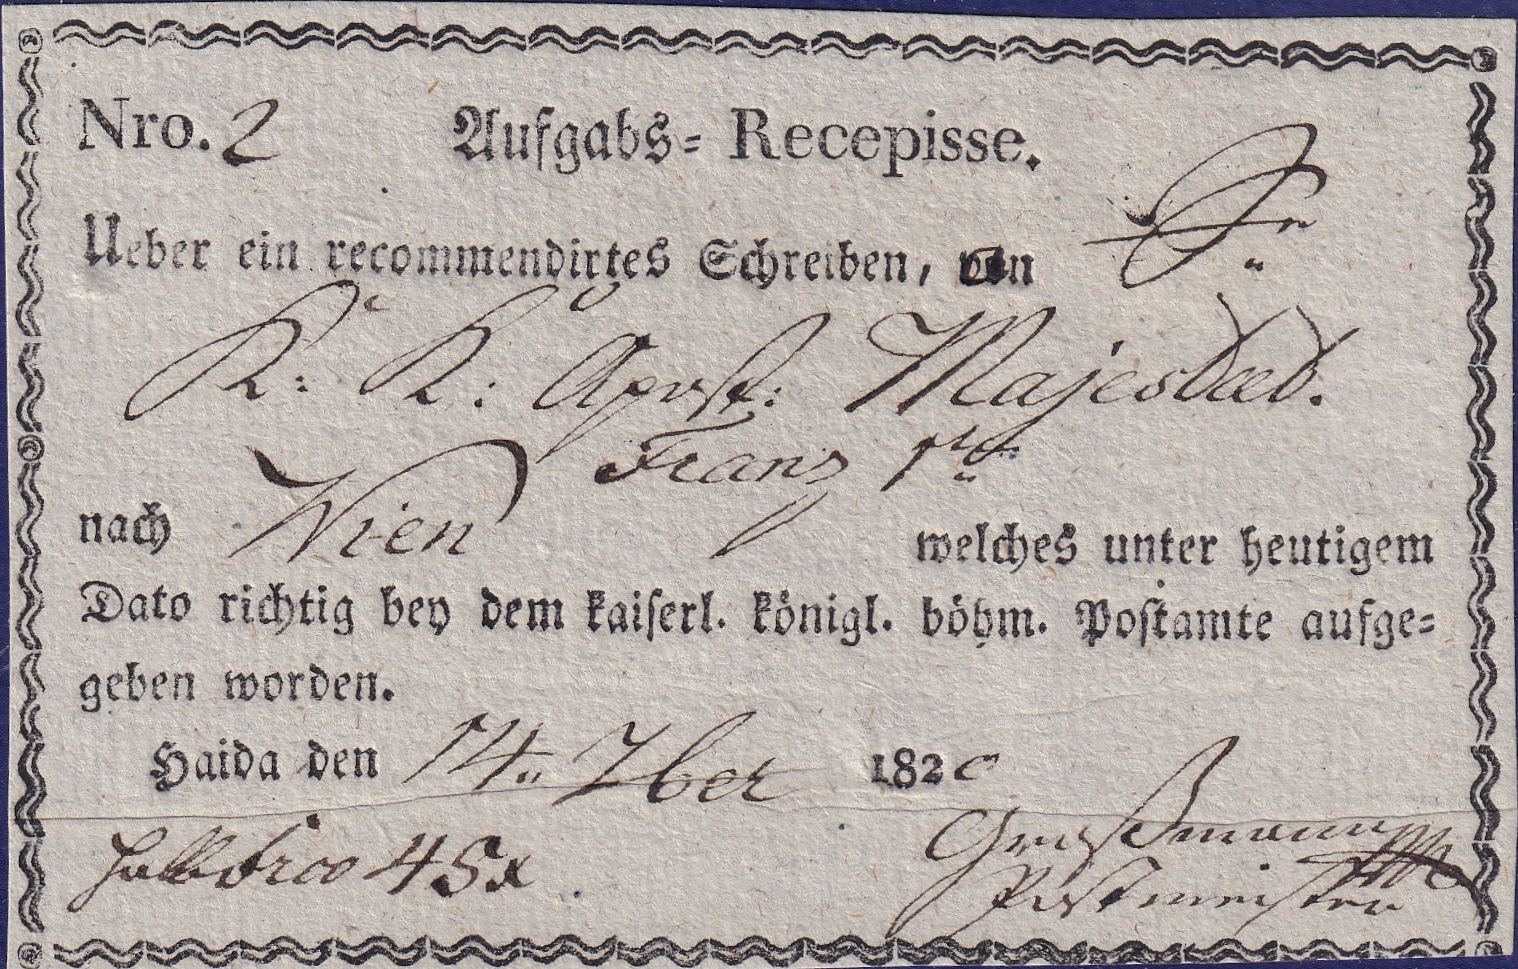 Nro. 2 Aufgabs-Recepisse.
Ueber ein recommendirtes Schreiben, an Sr
K: K: Apost: Majestaet.
Franz 1te
nach Wien welches unter heutigem
Dato richtig bey dem kaiserl. königl. böhm. Postamte aufge-
geben worden.
Haida den 14. 7ber 1820
45x Großmann
Postmeister